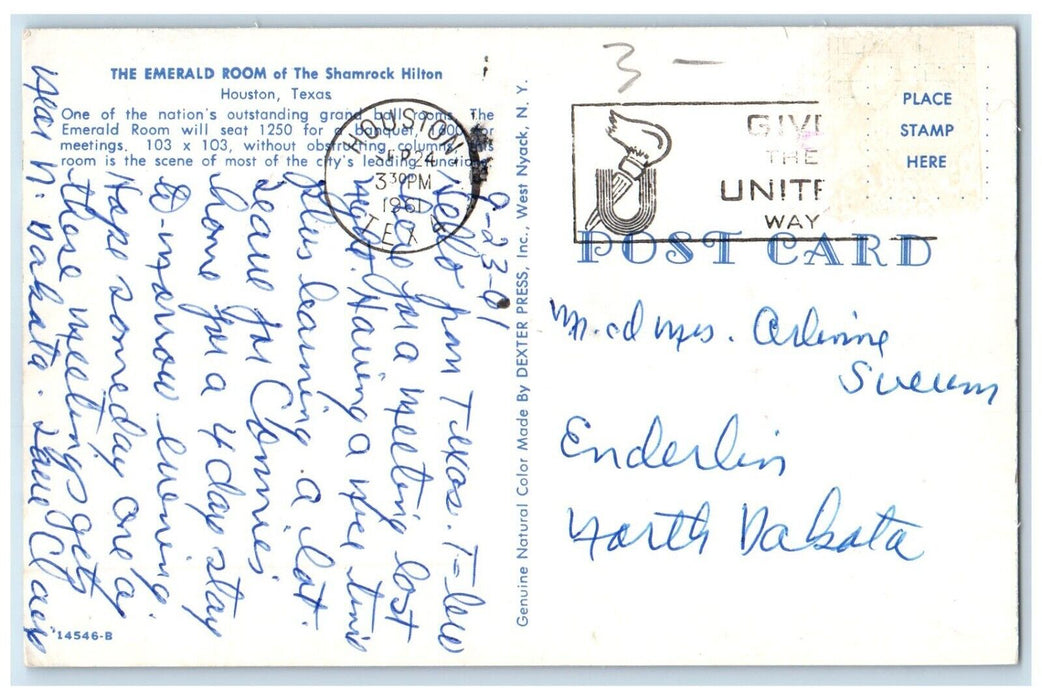 THE EMERALD ROOM of The Shamrock Hilton
Houston, Texas
One of the nation's outstanding grand ball rooms. The
Emerald Room will seat 1250 for a banquet, 1600 for
meetings. 103 x 103, without obstructing columns. This
room is the scene of most of the city's leading functions.
9-23-61
Hello from Texas.
here for a meeting last
night. Having a nice time
plus learning a lot.
Leave for Connies
home for a 4 day stay
to-morrow evening.
Hope someday one of
these meetings gets
near N. Dakota.
14546-B
Genuine Natural Color Made By DEXTER PRESS, Inc., West Nyack, N. Y.
HOUSTON
SEP 24
3 30 PM
1961
TEX
3 —
GIVE
THE
UNITE
WAY
PLACE
STAMP
HERE
POST CARD
Mr. and Mrs.
Enderlin
North Dakota